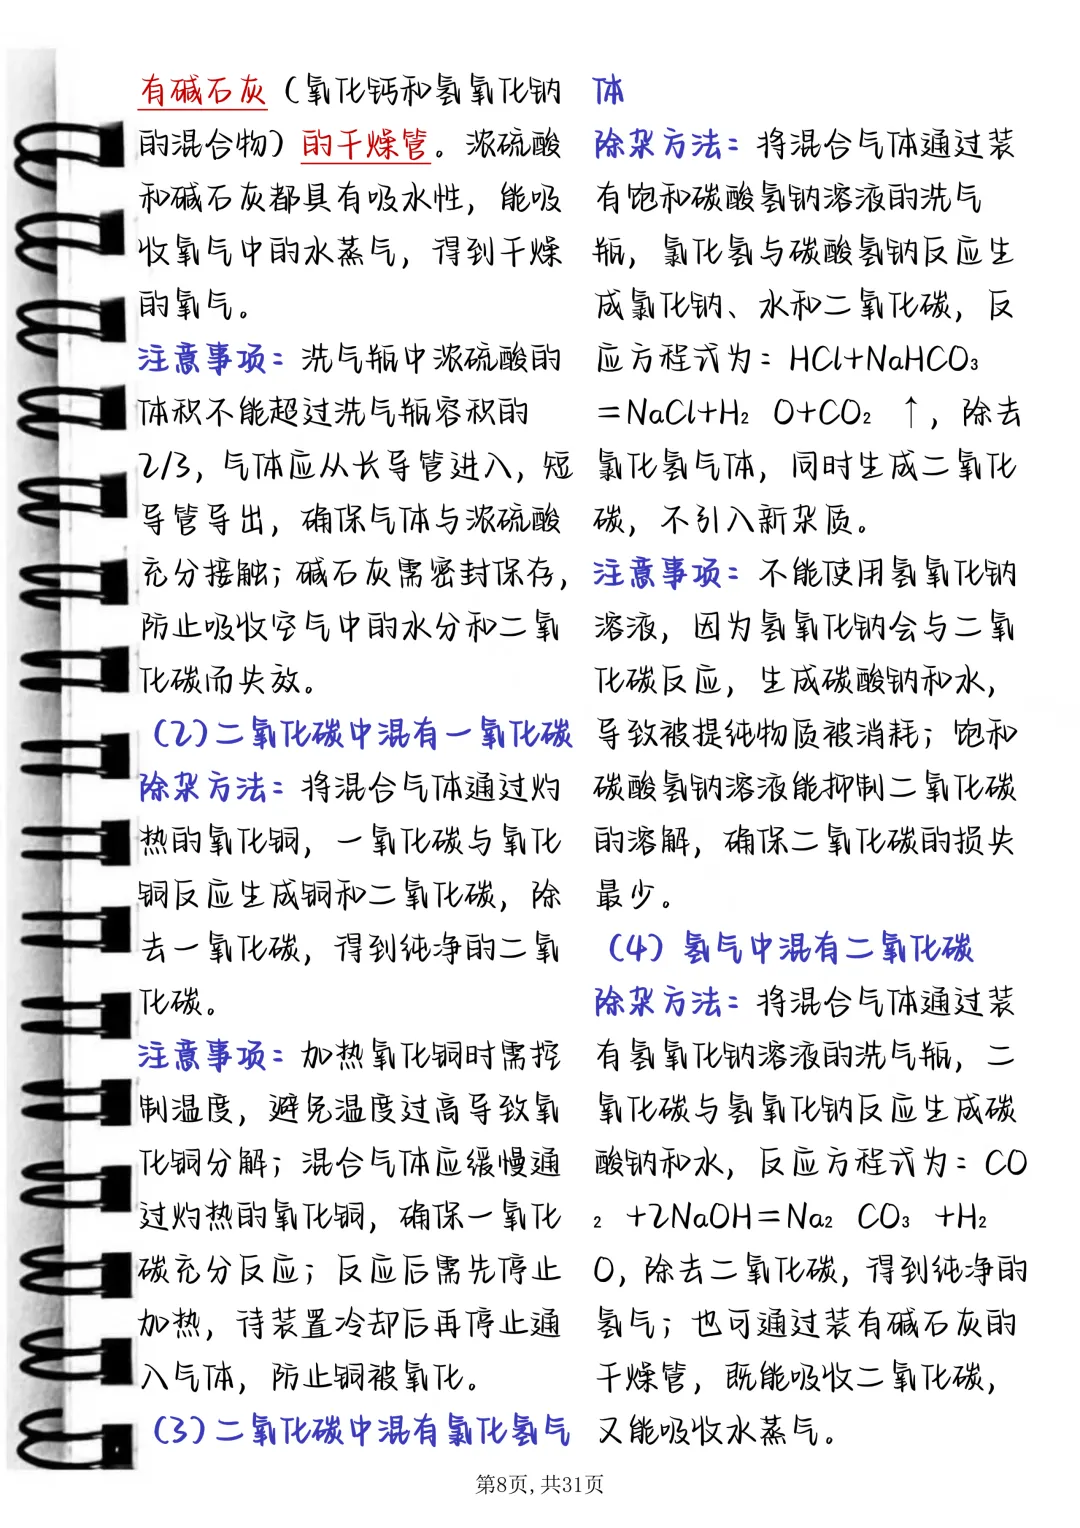 有碱石灰（氧化钙和氢氧化钠
的混合物）的干燥管。浓硫酸
和碱石灰都具有吸水性，能吸
收氧气中的水蒸气，得到干燥
的氧气。
注意事项：洗气瓶中浓硫酸的
体积不能超过洗气瓶容积的
2/3，气体应从长导管进入，短
导管导出，确保气体与浓硫酸
充分接触；碱石灰需密封保存，
防止吸收空气中的水分和二氧
化碳而失效。
（2）二氧化碳中混有一氧化碳
除杂方法：将混合气体通过灼
热的氧化铜，一氧化碳与氧化
铜反应生成铜和二氧化碳，除
去一氧化碳，得到纯净的二氧
化碳。
注意事项：加热氧化铜时需控
制温度，避免温度过高导致氧
化铜分解；混合气体应缓慢通
过灼热的氧化铜，确保一氧化
碳充分反应；反应后需先停止
加热，待装置冷却后再停止通
入气体，防止铜被氧化。
（3）二氧化碳中混有氯化氢气
体
除杂方法：将混合气体通过装
有饱和碳酸氢钠溶液的洗气
瓶，氯化氢与碳酸氢钠反应生
成氯化钠、水和二氧化碳，反
应方程式为：HCl+NaHCO₃
=NaCl+H₂ O+CO₂ ↑，除去
氯化氢气体，同时生成二氧化
碳，不引入新杂质。
注意事项：不能使用氢氧化钠
溶液，因为氢氧化钠会与二氧
化碳反应，生成碳酸钠和水，
导致被提纯物质被消耗；饱和
碳酸氢钠溶液能抑制二氧化碳
的溶解，确保二氧化碳的损失
最少。
（4）氢气中混有二氧化碳
除杂方法：将混合气体通过装
有氢氧化钠溶液的洗气瓶，二
氧化碳与氢氧化钠反应生成碳
酸钠和水，反应方程式为：CO
₂ +2NaOH=Na₂ CO₃ +H₂
O，除去二氧化碳，得到纯净的
氢气；也可通过装有碱石灰的
干燥管，既能吸收二氧化碳，
又能吸收水蒸气。
第8页,共31页